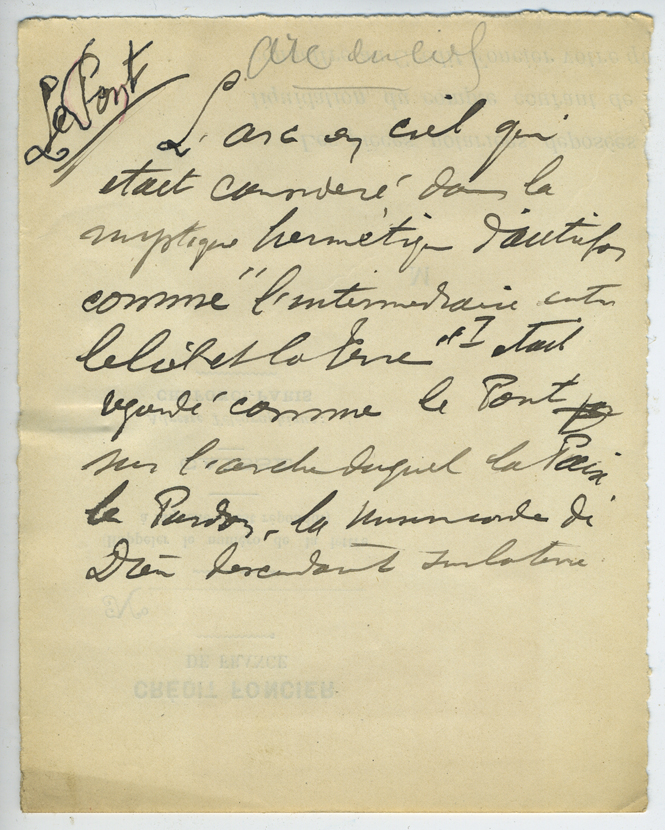 Le Pont
Arc du ciel
L'arc en ciel qui
était considéré dans la
mystique hermétique d'autrefois
comme "l'intermédiaire entre
le Ciel et la Terre" était
regardé comme le Pont
sur l'arche duquel la Paix
le Pardon, la Misericorde de
Dieu descendant sur la terre
CRÉDIT FONCIER
DE FRANCE